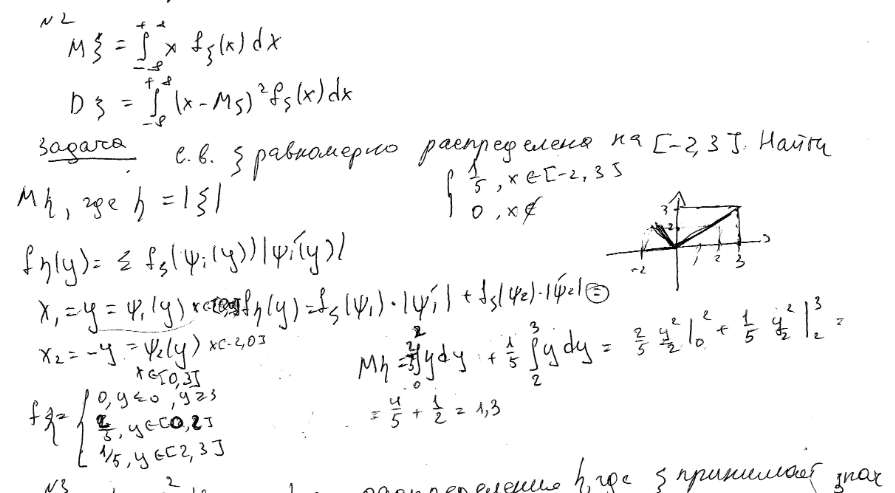 №2
Mξ = ∫_{-∞}^{+∞} x f_ξ(x) dx
Dξ = ∫_{-∞}^{+∞} (x - Mξ)² f_ξ(x) dx
Задача с.в. ξ равномерно распределена на [-2, 3]. Найти
Mη, где η = |ξ|
{ 1/5, x ∈ [-2, 3]
0, x ∉
3 2 -2 1 2 3
f_η(y) = Σ f_ξ(ψ_i(y)) |ψ_i'(y)|
x₁ = y = ψ₁(y) f_η(y) = f_ξ(ψ₁)·|ψ₁'| + f_ξ(ψ₂)·|ψ₂'| =
x₂ = -y = ψ₂(y) x ∈ [-2, 0]
x ∈ [0, 3]
f_η = { 0, y ≤ 0, y ≥ 3
2/5, y ∈ [0, 2]
1/5, y ∈ [2, 3]
Mη = 2/5 ∫_0^2 y dy + 1/5 ∫_2^3 y dy = 2/5 y²/2 |_0^2 + 1/5 y²/2 |_2^3 =
= 4/5 + 1/2 = 1,3
№3 распределения η, где ξ принимает знач